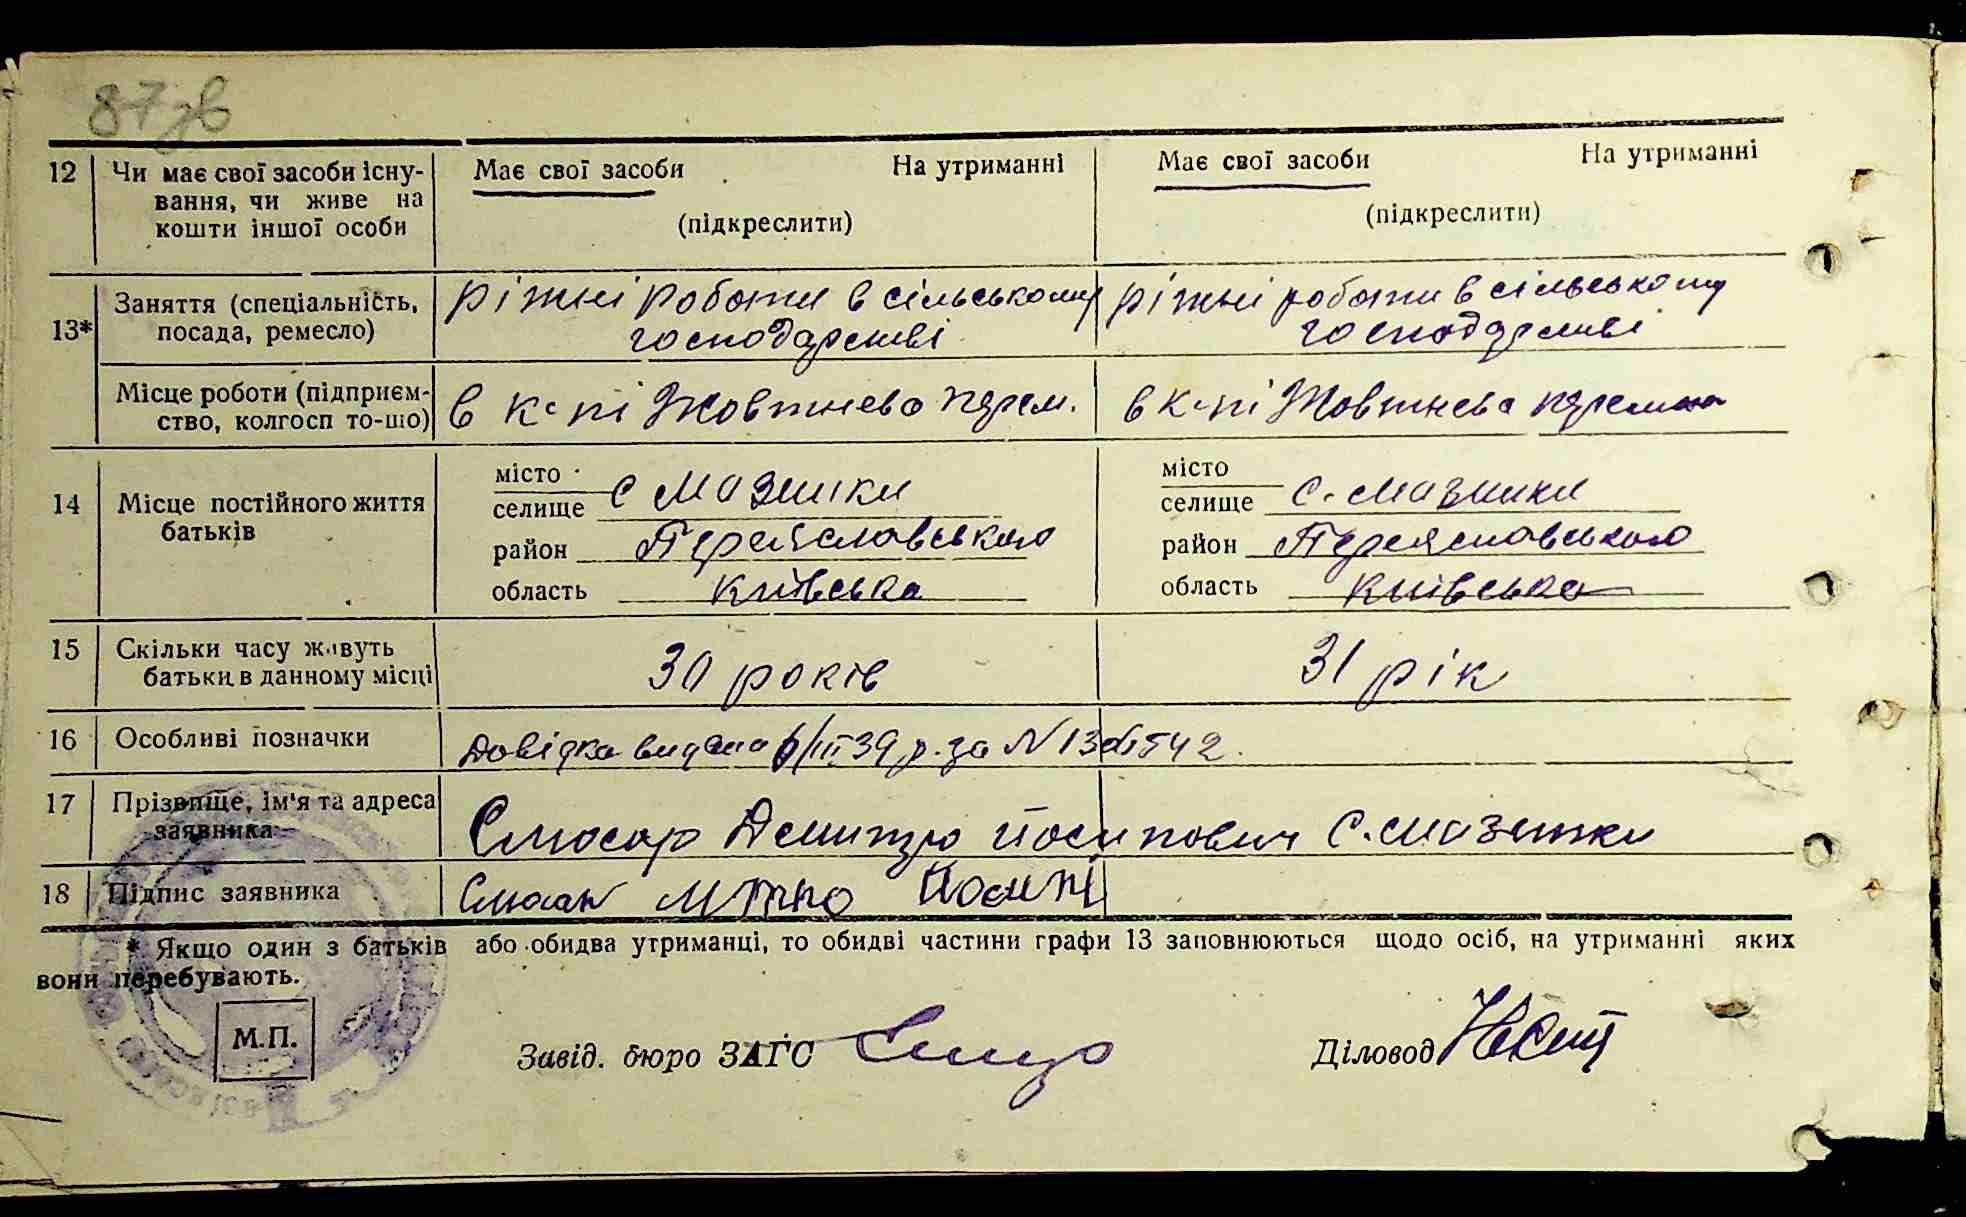 87зв
12 Чи має свої засоби існу- Має свої засоби На утриманні Має свої засоби На утриманні
вання, чи живе на
кошти іншої особи (підкреслити) (підкреслити)
13* Заняття (спеціальність, ріжні роботи в сільському ріжні роботи в сільському
посада, ремесло) господарстві господарстві
Місце роботи (підприєм- в к-пі Жовтнева в к-пі Жовтнева
ство, колгосп то-що)
14 Місце постійного життя місто місто
батьків селище с Мазинки селище с. Мазинки
район Переяславського район Переяславського
область Київська область Київська
15 Скільки часу живуть 30 років 31 рік
батьки в данному місці
16 Особливі позначки Довідка видана 6/III 39 р. за N
17 Прізвище, ім'я та адреса Слюсар Дмитро Йосипович с. Мазинки
заявника
18 Підпис заявника
* Якщо один з батьків або обидва утриманці, то обидві частини графи 13 заповнюються щодо осіб, на утриманні яких
вони перебувають.
М.П.
Завід. бюро ЗАГС Діловод